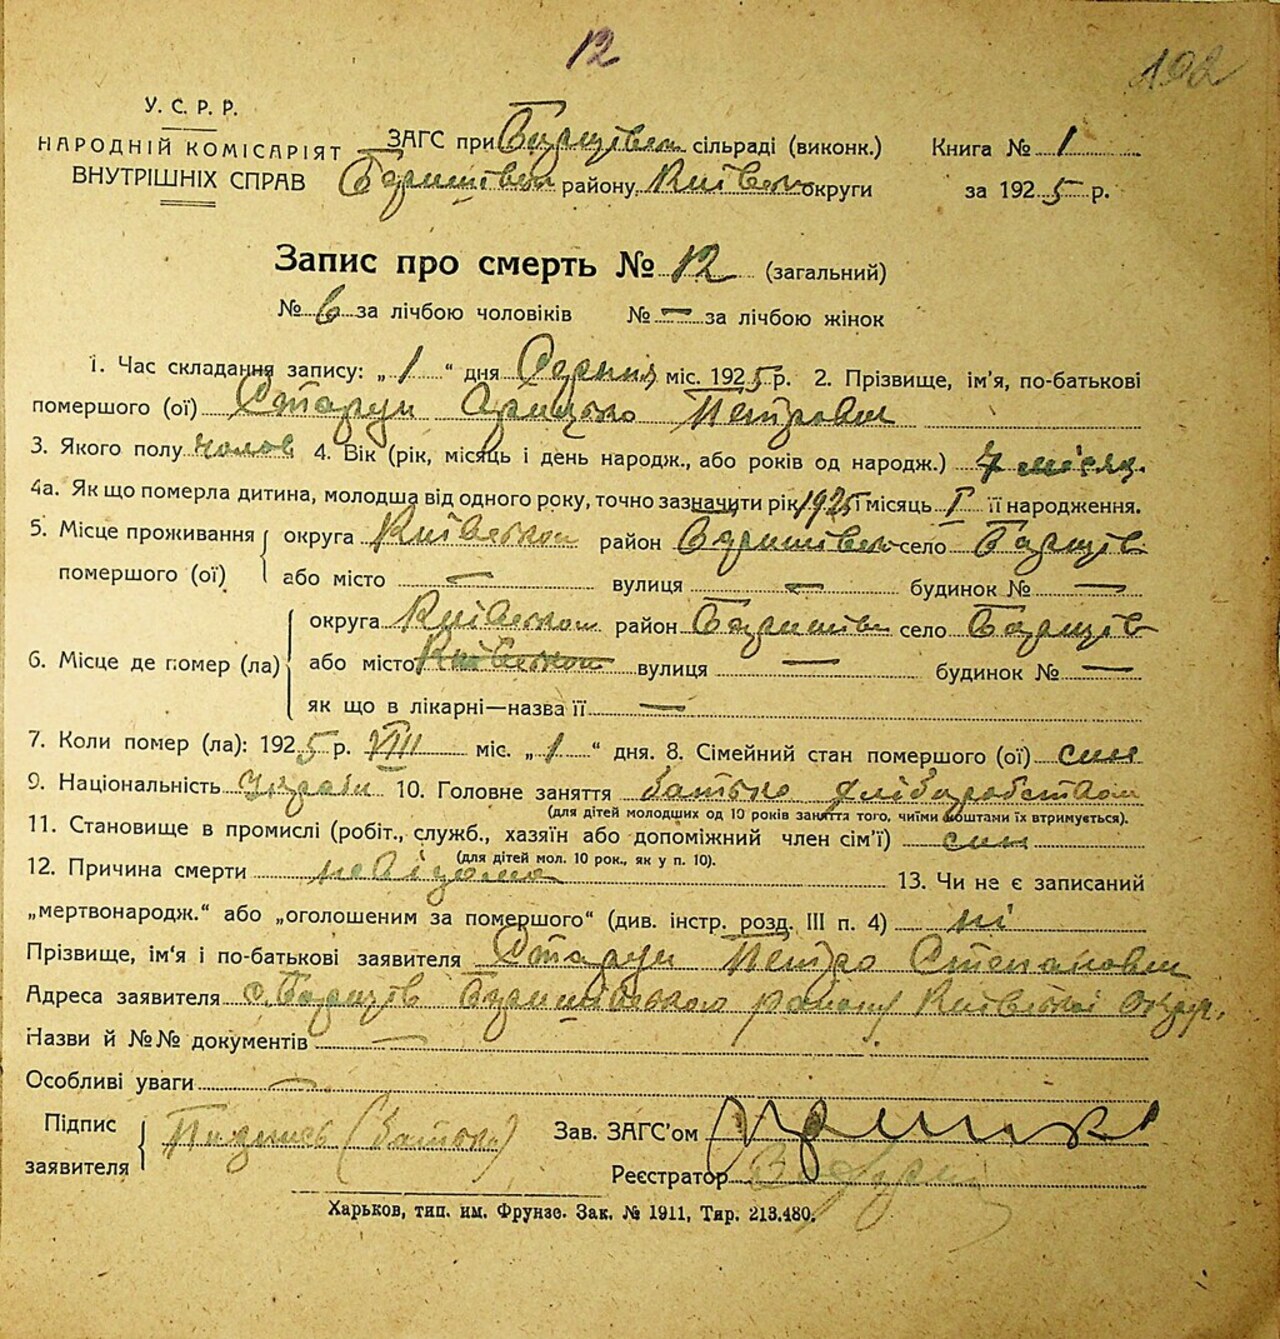 12
192
У. С. Р. Р.
НАРОДНІЙ КОМІСАРІЯТ
ВНУТРІШНІХ СПРАВ
ЗАГС при сільраді (виконк.)
району Київськ округи
Книга № 1
за 1925 р.
Запис про смерть № 12 (загальний)
№ 6 за лічбою чоловіків № — за лічбою жінок
1. Час складання запису: „ 1 “ дня Серпня міс. 1925 р. 2. Прізвище, ім'я, по-батькові
помершого (ої) Петрович
3. Якого полу чолов 4. Вік (рік, місяць і день народж., або років од народж.) 7 місяц.
4а. Як що померла дитина, молодша від одного року, точно зазначити рік 1925 і місяць I її народження.
5. Місце проживання помершого (ої) округа Київської район село
або місто — вулиця — будинок № —
6. Місце де помер (ла) округа Київської район село
або місто Київської вулиця — будинок № —
як що в лікарні—назва її —
7. Коли помер (ла): 1925 р. VIII міс. „ 1 “ дня. 8. Сімейний стан помершого (ої) син
9. Національність Україн 10. Головне заняття батько хліборобством
(для дітей молодших од 10 років заняття того, чиїми коштами їх втримується).
11. Становище в промислі (робіт., служб., хазяїн або допоміжний член сім'ї) син
(для дітей мол. 10 рок., як у п. 10).
12. Причина смерти невідома 13. Чи не є записаний
„мертвонародж.“ або „оголошеним за помершого“ (див. інстр. розд. III п. 4) ні
Прізвище, ім'я і по-батькові заявителя Петро Степанович
Адреса заявителя с. району Київської округ.
Назви й №№ документів —
Особливі уваги —
Підпис заявителя (батько)
Зав. ЗАГС'ом
Реєстратор
Харьков, тип. им. Фрунзе. Зак. № 1911, Тир. 213.480.